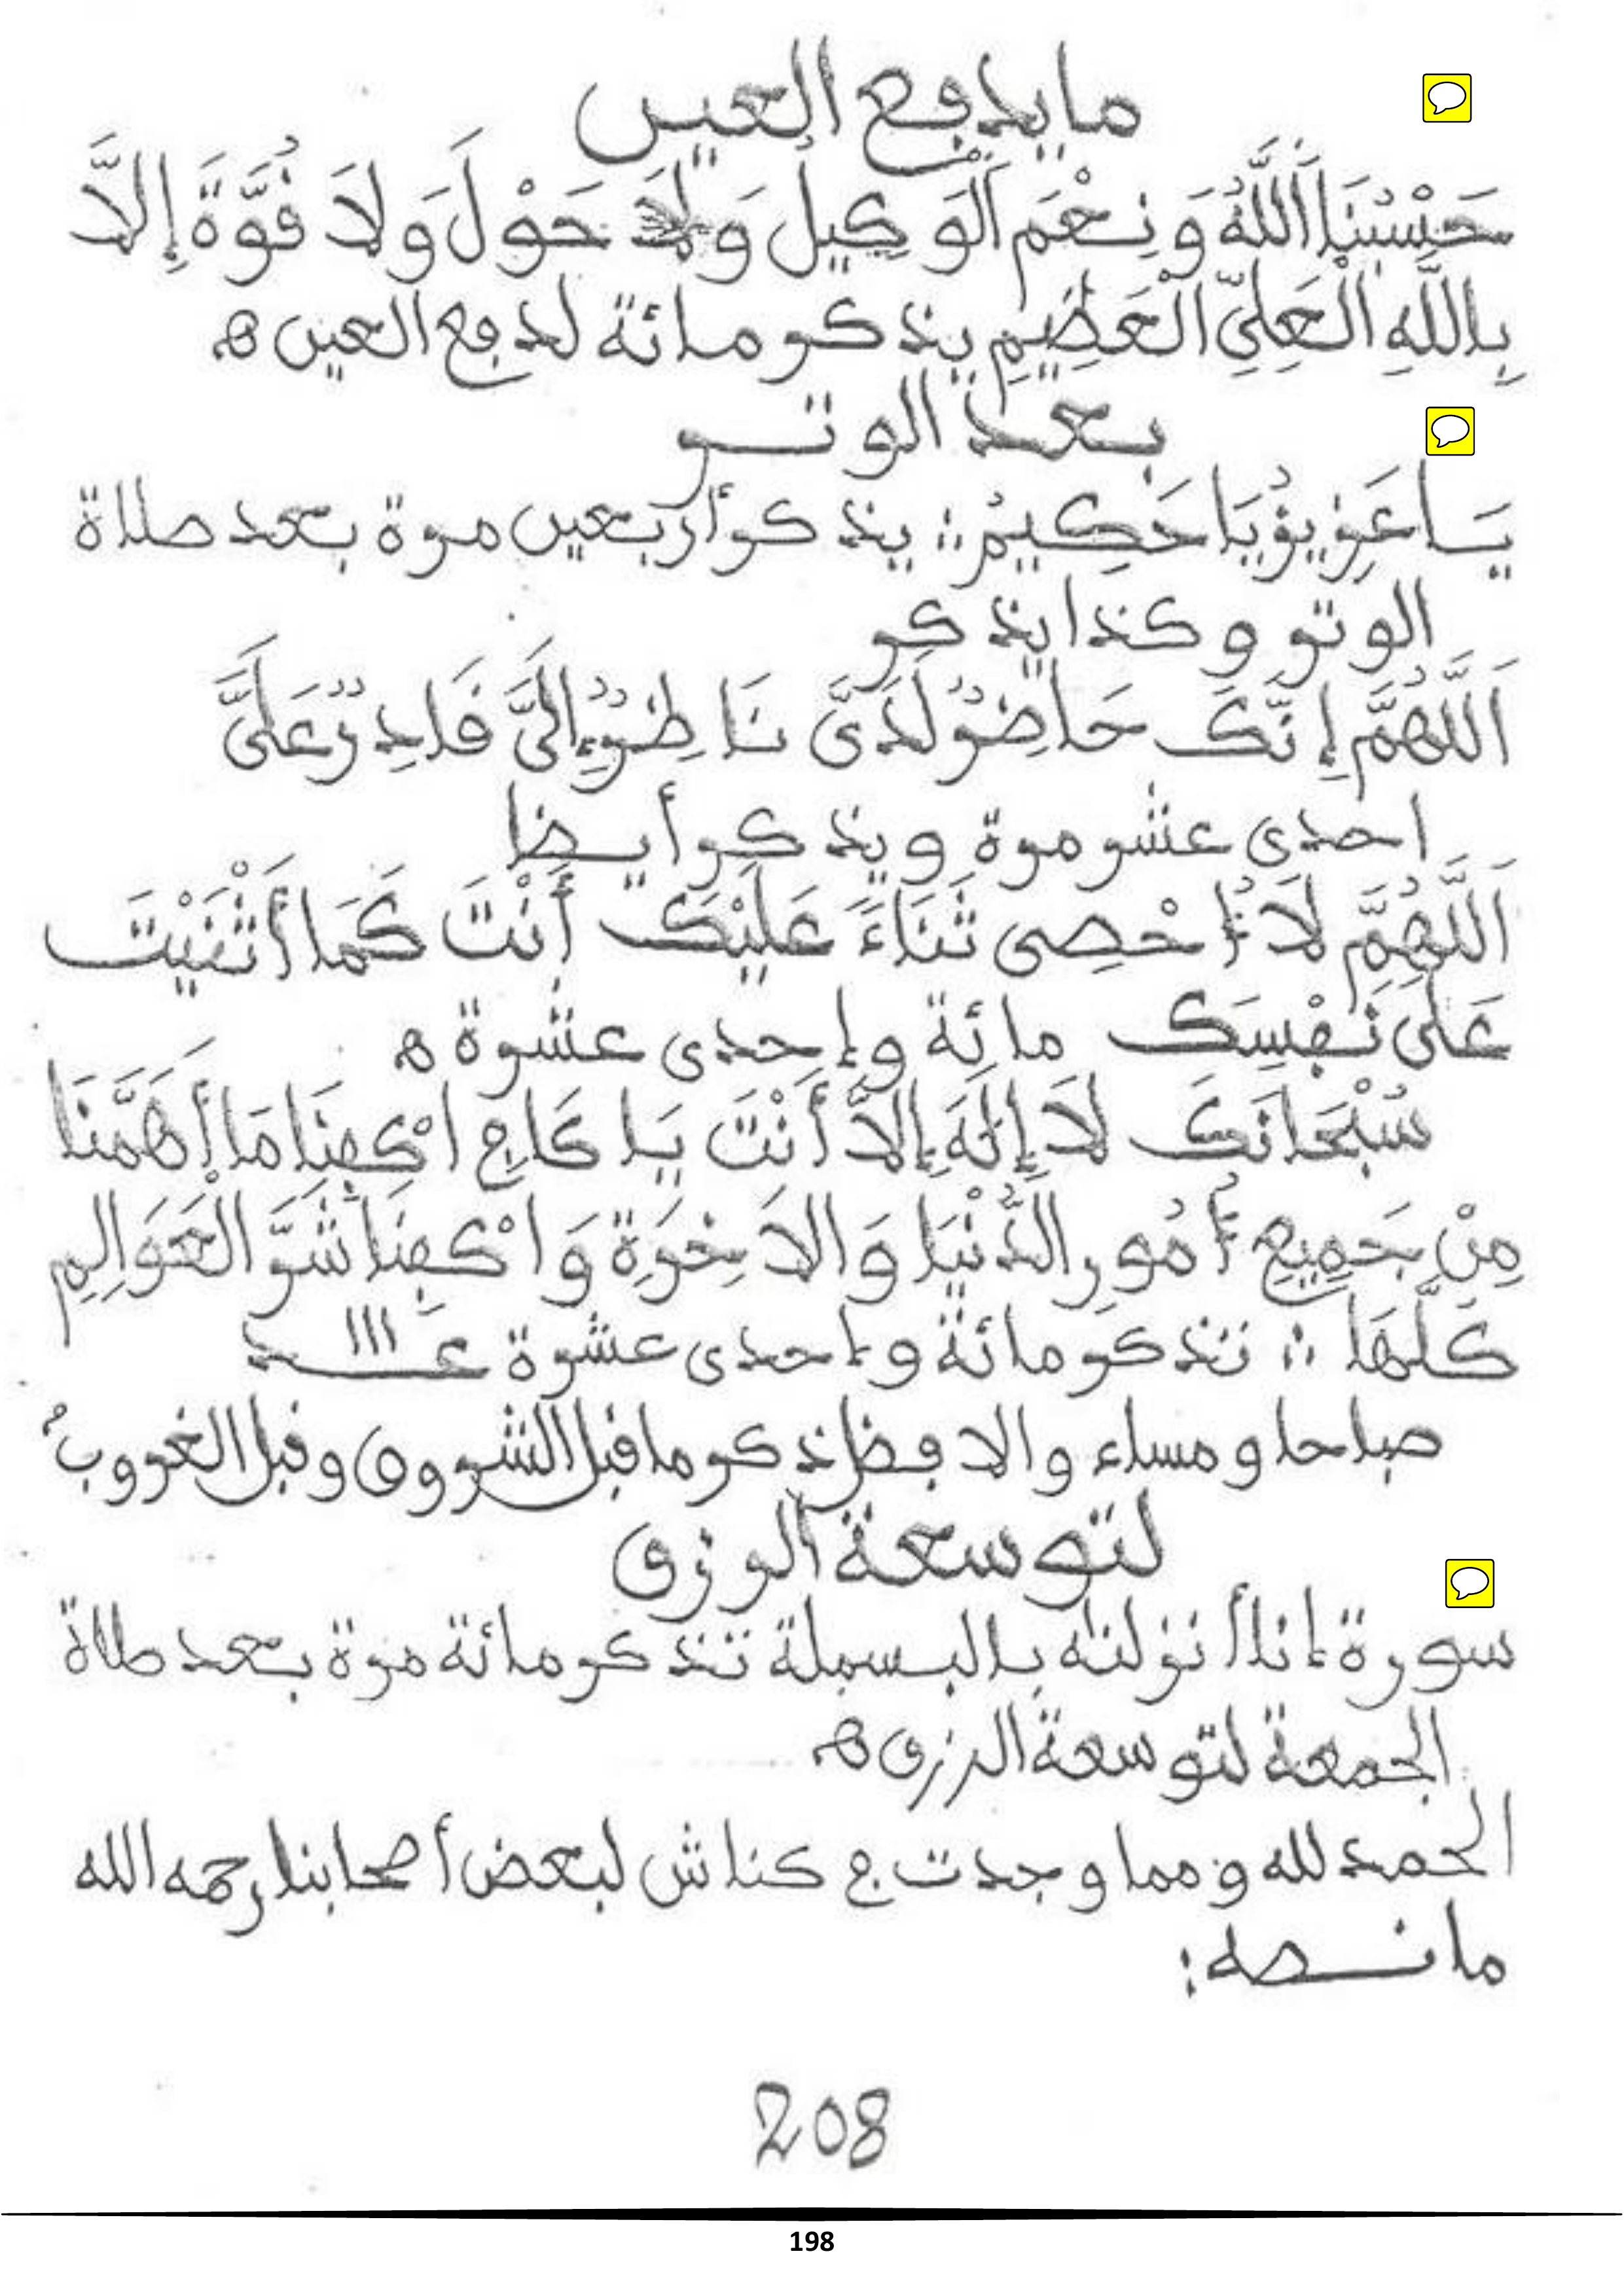 ما يدفع العين
حَسْبُنَا اَللَّهُ وَنِعْمَ اَلْوَكِيلُ وَلَا حَوْلَ وَلَا قُوَّةَ إِلَّا
بِاللَّهِ الْعَلِيِّ الْعَظِيمِ يذكر مائة لدفع العين ه
بعد الوتر
يَا عَزِيزُ يَا حَكِيمُ ؞ يذكر أربعين مرة بعد صلاة
الوتر وكذا يذكر
اَللَّهُمَّ إِنَّكَ حَاضِرٌ لَدَىَّ نَاظِرٌ إِلَىَّ قَادِرٌ عَلَىَّ
احدى عشر مرة ويذكر أيضا
اَللَّهُمَّ لَا أُحْصِى ثَنَاءً عَلَيْكَ أَنْتَ كَمَا أَثْنَيْتَ
عَلَى نَفْسِكَ مائة وإحدى عشرة ه
سُبْحَانَكَ لَا إِلَهَ إِلَّا أَنْتَ يَا كَافِي اكْفِنَا مَا أَهَمَّنَا
مِنْ جَمِيعِ أُمُورِ الدُّنْيَا وَالَاخِرَةِ وَاكْفِنَا شَرَّ الْعَوَالِمِ
كُلِّهَا ؞ تذكر مائة وإحدى عشرة عــ111ــدد
صباحا ومساء والافضل ذكرها قبل الشروق وقبل الغروب
لتوسعة الرزق
سورة إنا أنزلنه بالبسملة تذكر مائة مرة بعد صلاة
الجمعة لتوسعة الرزق ه
الحمد لله ومما وجدت في كناش لبعض أصحابنا رحمه الله
ما نصه:
208
198